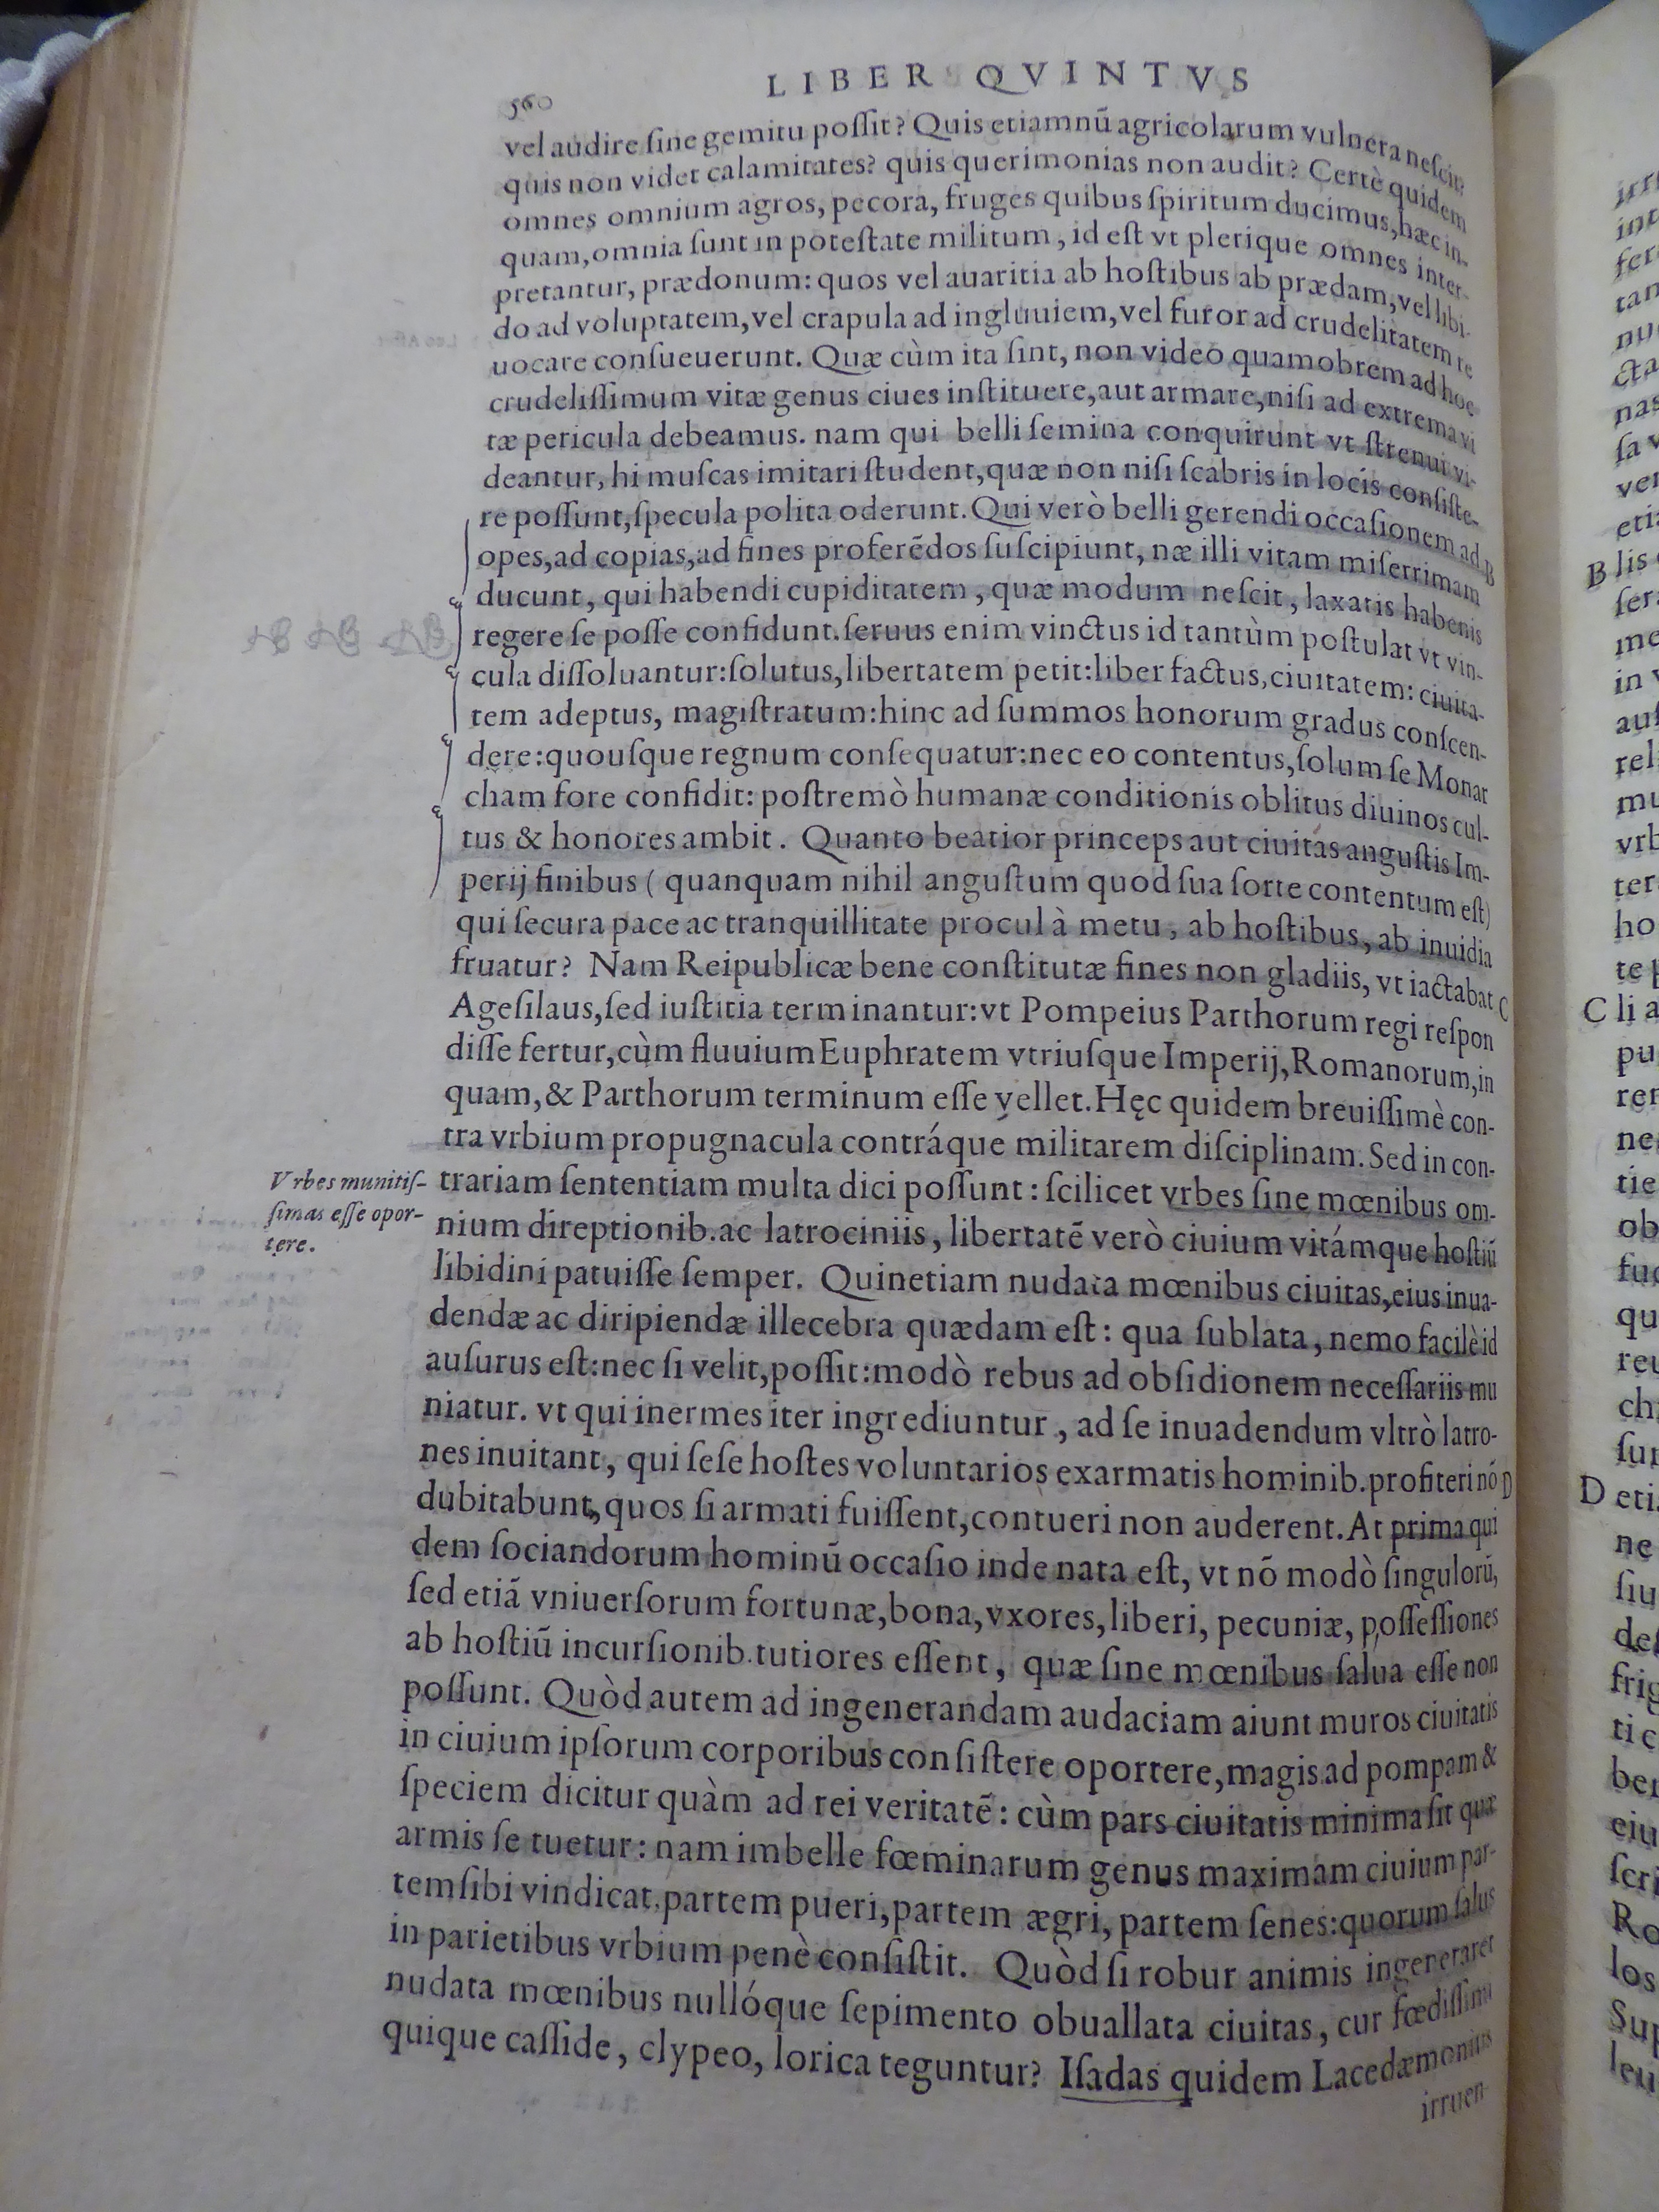 LIBER QVINTVS
560
vel audire ſine gemitu poſſit? Quis etiamnũ agricolarum vulnera neſcit?
quis non videt calamitates? quis querimonias non audit? Certè quidem
omnes omnium agros, pecora, fruges quibus ſpiritum ducimus, hæc in-
quam, omnia ſunt in poteſtate militum, id eſt vt plerique omnes inter-
pretantur, prædonum: quos vel auaritia ab hoſtibus ab prædam, vel libi-
do ad voluptatem, vel crapula ad ingluuiem, vel furor ad crudelitatem re
uocare conſueuerunt. Quæ cùm ita ſint, non video quamobrem ad hoc
crudeliſſimum vitæ genus ciues inſtituere, aut armare, niſi ad extrema vi
tæ pericula debeamus. nam qui belli ſemina conquirunt vt ſtrenui vi-
deantur, hi muſcas imitari ſtudent, quæ non niſi ſcabris in locis conſiſte-
re poſſunt, ſpecula polita oderunt. Qui verò belli gerendi occaſionem ad
B
opes, ad copias, ad fines proferẽdos ſuſcipiunt, næ illi vitam miſerrimam
ducunt, qui habendi cupiditatem, quæ modum neſcit, laxatis habenis
regere ſe poſſe confidunt. ſeruus enim vinctus id tantùm poſtulat vt vin-
cula diſſoluantur: ſolutus, libertatem petit: liber factus, ciuitatem: ciuita-
tem adeptus, magiſtratum: hinc ad ſummos honorum gradus conſcen-
dere: quouſque regnum conſequatur: nec eo contentus, ſolum ſe Monar
cham fore confidit: poſtremò humanæ conditionis oblitus diuinos cul-
tus & honores ambit. Quanto beatior princeps aut ciuitas anguſtis Im-
perij finibus ( quanquam nihil anguſtum quod ſua ſorte contentum eſt)
qui ſecura pace ac tranquillitate procul à metu, ab hoſtibus, ab inuidia
fruatur? Nam Reipublicæ bene conſtitutæ fines non gladiis, vt iactabat
C
Ageſilaus, ſed iuſtitia terminantur: vt Pompeius Parthorum regi reſpon
diſſe fertur, cùm fluuium Euphratem vtriuſque Imperij, Romanorum, in
quam, & Parthorum terminum eſſe vellet. Hęc quidem breuiſſimè con-
tra vrbium propugnacula contráque militarem diſciplinam. Sed in con-
Vrbes munitiſ-
ſimas eſſe opor-
tere.
trariam ſententiam multa dici poſſunt: ſcilicet vrbes ſine mœnibus om-
nium direptionib. ac latrociniis, libertatẽ verò ciuium vitámque hoſtiũ
libidini patuiſſe ſemper. Quinetiam nudata mœnibus ciuitas, eius inua-
dendæ ac diripiendæ illecebra quædam eſt: qua ſublata, nemo facilè id
auſurus eſt: nec ſi velit, poſſit: modò rebus ad obſidionem neceſſariis mu
niatur. vt qui inermes iter ingrediuntur, ad ſe inuadendum vltrò latro-
nes inuitant, qui ſeſe hoſtes voluntarios exarmatis hominib. profiteri nõ
D
dubitabunt, quos ſi armati fuiſſent, contueri non auderent. At prima qui
dem ſociandorum hominũ occaſio inde nata eſt, vt nõ modò ſingulorũ,
ſed etiã vniuerſorum fortunæ, bona, vxores, liberi, pecuniæ, poſſeſſiones
ab hoſtiũ incurſionib. tutiores eſſent, quæ ſine mœnibus ſalua eſſe non
poſſunt. Quòd autem ad ingenerandam audaciam aiunt muros ciuitatis
in ciuium ipſorum corporibus conſiſtere oportere, magis ad pompam &
ſpeciem dicitur quàm ad rei veritatẽ: cùm pars ciuitatis minima ſit quæ
armis ſe tuetur: nam imbelle fœminarum genus maximam ciuium par-
tem ſibi vindicat, partem pueri, partem ægri, partem ſenes: quorum ſalus
in parietibus vrbium penè conſiſtit. Quòd ſi robur animis ingeneraret
nudata mœnibus nullóque ſepimento obuallata ciuitas, cur fœdiſſimi
quique caſſide, clypeo, lorica teguntur? Iſadas quidem Lacedæmonius
irruen-
B
C
D